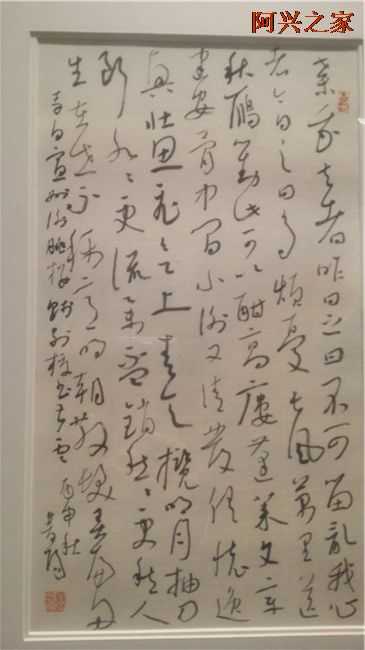 阿兴之家
棄我去者昨日之日不可留亂我心
者今日之日多煩憂長風萬里送
秋雁對此可以酣高樓蓬萊文章
建安骨中間小謝又清發俱懷逸
興壯思飛欲上青天攬明月抽刀
斷水々更流舉杯銷愁々更愁人
生在世不稱意明朝散髮弄扁舟
李白宣州謝朓樓餞別校書叔雲 丙申秋